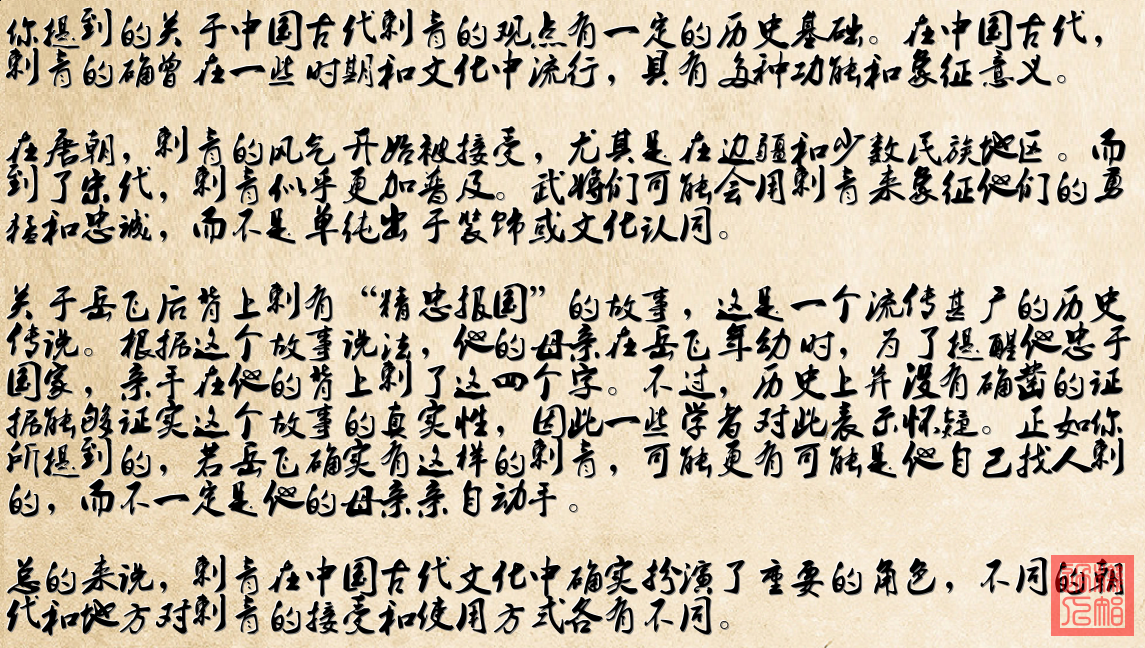 你提到的关于中国古代刺青的观点有一定的历史基础。在中国古代，
刺青的确曾在一些时期和文化中流行，具有多种功能和象征意义。
在唐朝，刺青的风气开始被接受，尤其是在边疆和少数民族地区。而
到了宋代，刺青似乎更加普及。武将们可能会用刺青来象征他们的勇
猛和忠诚，而不是单纯出于装饰或文化认同。
关于岳飞后背上刺有“精忠报国”的故事，这是一个流传甚广的历史
传说。根据这个故事说法，他的母亲在岳飞年幼时，为了提醒他忠于
国家，亲手在他的背上刺了这四个字。不过，历史上并没有确凿的证
据能够证实这个故事的真实性，因此一些学者对此表示怀疑。正如你
所提到的，若岳飞确实有这样的刺青，可能更有可能是他自己找人刺
的，而不一定是他的母亲亲自动手。
总的来说，刺青在中国古代文化中确实扮演了重要的角色，不同的朝
代和地方对刺青的接受和使用方式各有不同。